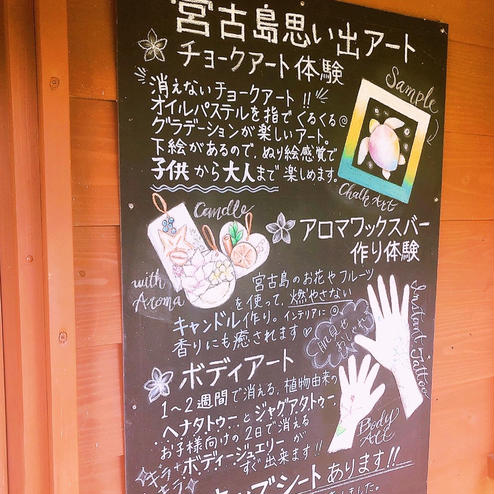 宮古島思い出アート
チョークアート体験
消えないチョークアート!!
オイルパステルを指でくるくる◎
グラデーションが楽しいアート。
下絵があるので、ぬり絵感覚で
子供から大人まで楽しめます。
Sample
Chalk Art
Candle
with
Aroma
アロマワックスバー
作り体験
宮古島のお花やフルーツ
を使って、燃やさない
キャンドル作り。インテリアに◎
香りにも癒されます♡
Instant Tattoo
ボディアート
1〜2週間で消える、植物由来の
ヘナタトゥーとジャグアタトゥー
お子様向けの2日で消える
ボディージュエリーが
すぐ出来ます!!
キラキラ
Body
Art
シートあります!!
ました。